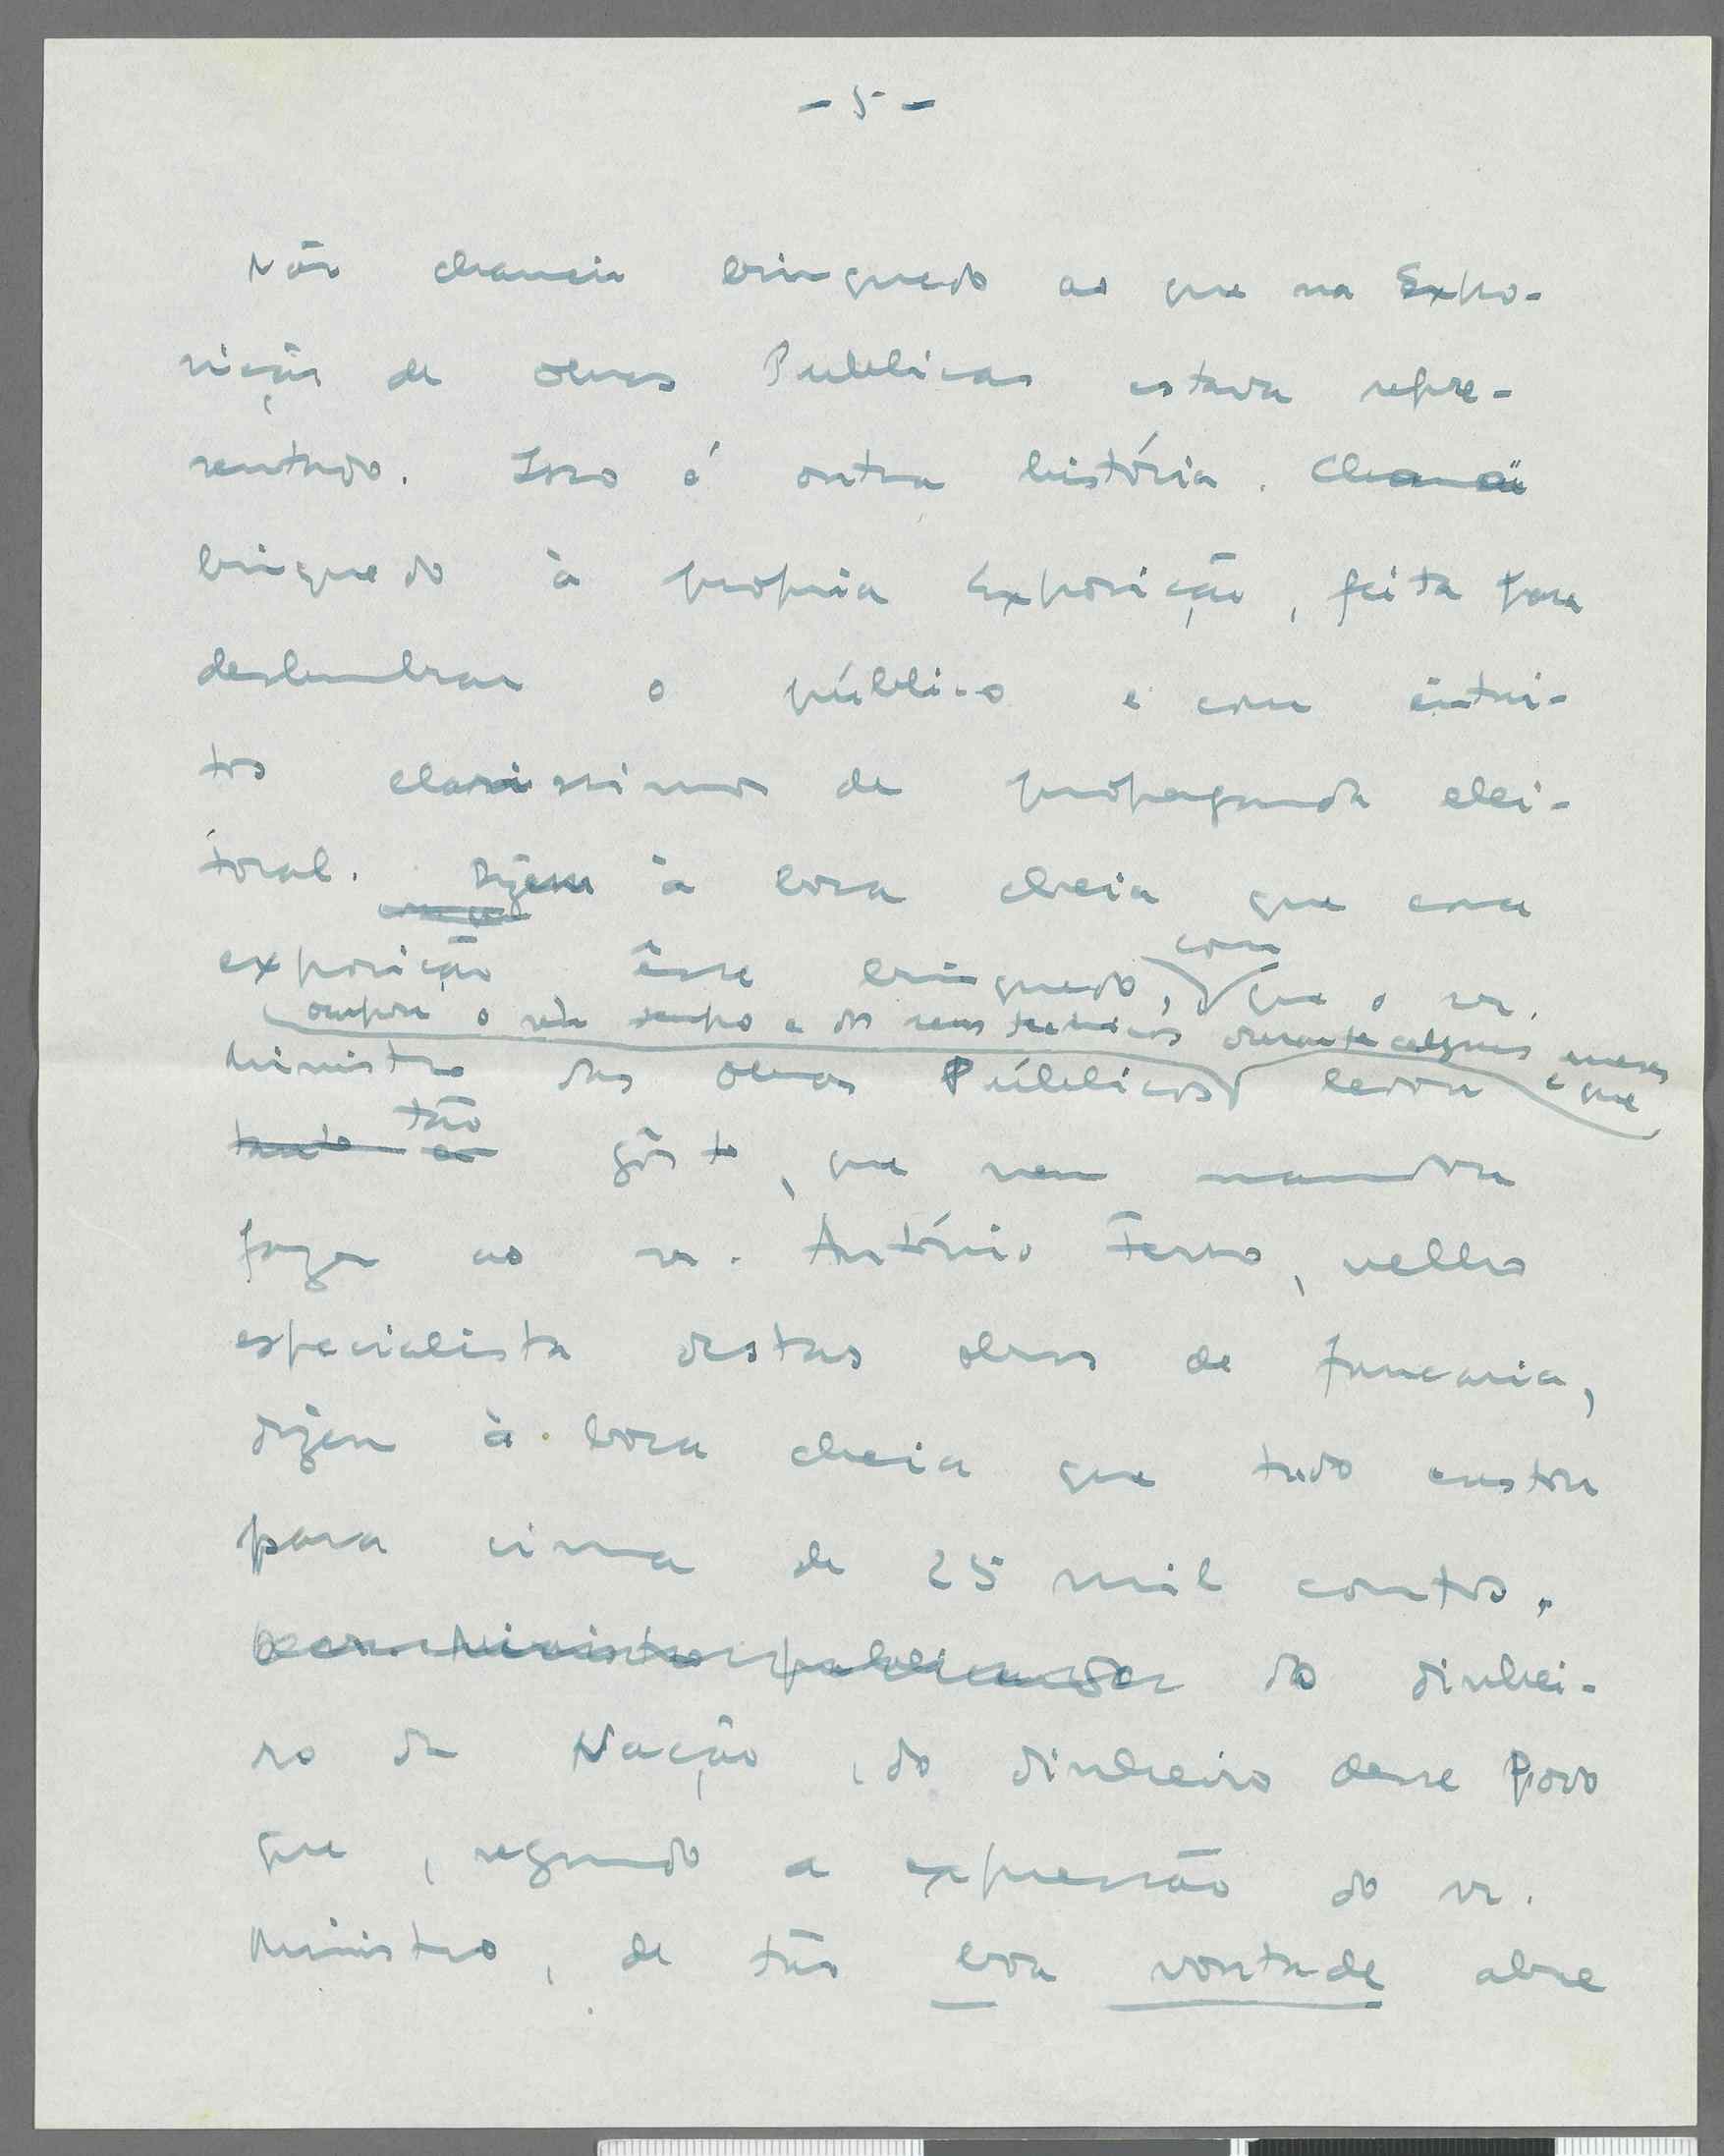 - 5 -
Não chamei brinquedo ao que na Expo-
sição de Obras Publicas estava repre-
sentado. Isso é outra história. Chamei
briquedo à propria Exposição, feita para
deslumbrar o público e com intui-
tos clarissimos de propaganda elei-
toral. Dizem à boca cheia que essa
exposição, êsse brinquedo, com que o sr.
ocupou o seu tempo e dos seus tecnicos durante alguns meses e que
Ministro das Obras Públicas levou
tão
tanto a gôsto, que nem mandou
fazer ao sr. António Ferro, velho
especialista destas obras de fancaria,
dizem à boca cheia que tudo custou
para cima de 25 mil contos.
do dinhei-
ro da Nação, do dinheiro desse Povo
que, segundo a expressão do sr.
Ministro, de tão boa vontade abre